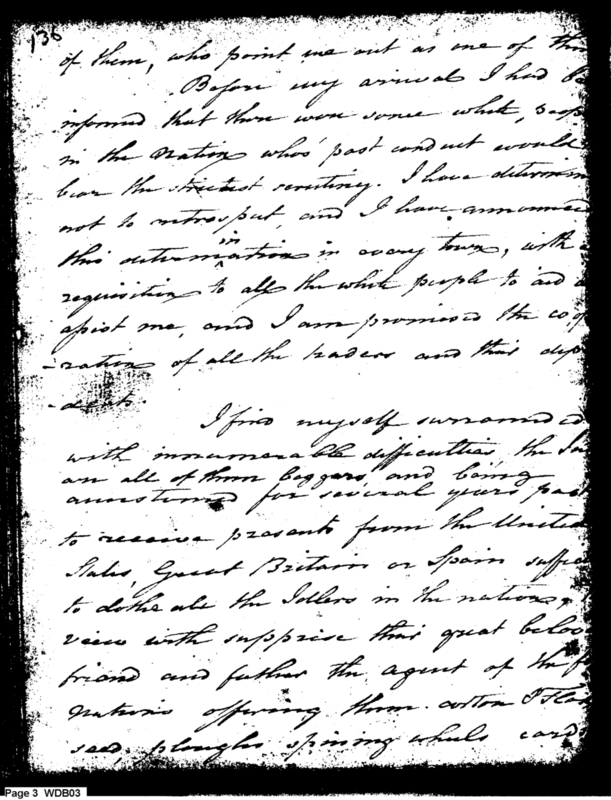 136
of them, who point me out as one of
Before my arrival I had
informed that there were some white,
in the nation whos' past conduct would
bear the strictest scrutiny. I have determin
not to retrospect, and I have announced
in
this determination in every town, with
requisition to all the white people to aid
assist me, and I am promised the co
-ration of all the traders and their dep
-dents.
I find myself surrounded
with innumerable difficulties, the In
are all of them beggars, and being
accustomed for several years past
to receive presents from the United
States, Great Britain or Spain suffic
to clothe all the Idlers in the nation,
view with supprise their great belov
friend and father the agent of the
nations offering them cotton & Flax
seed, ploughs spining wheels cards
Page 3 WDB03